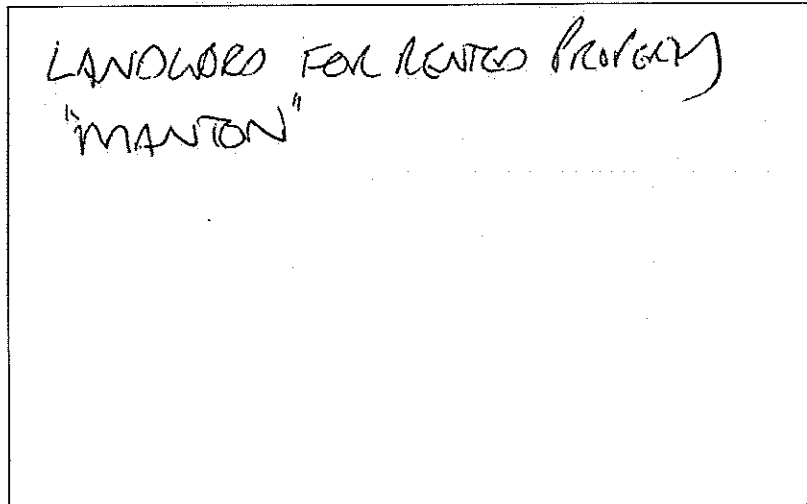 LANDLORD FOR RENTED PROPERTY
"MANTON"